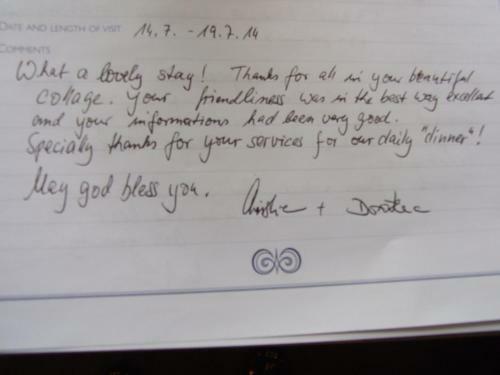 DATE AND LENGTH OF VISIT 14.7. - 19.7.14
COMMENTS
What a lovely stay! Thanks for all in your beautiful
cottage. Your friendliness was in the best way excellent
and your informations had been very good.
Specially thanks for your services for our daily "dinner"!
May god bless you.
+